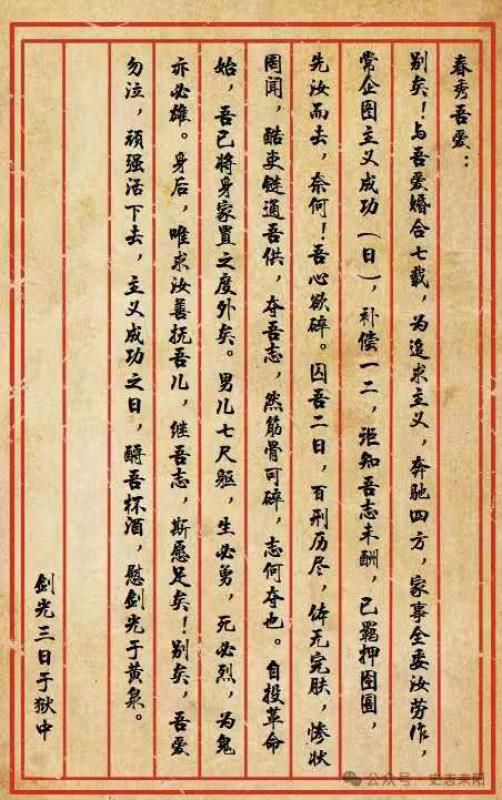 春秀吾爱：
别矣！与吾爱婚合七载，为追求主义，奔驰四方，家事全委汝劳作，
常企图主义成功（日），补偿一二，讵知吾志未酬，已羁押囹圄，
先汝而去，奈何！吾心欲碎。囚吾二日，百刑历尽，体无完肤，惨状
罔闻，酷吏链通吾供，夺吾志，然筋骨可碎，志何夺也。自投革命
始，吾已将身家置之度外矣。男儿七尺躯，生必勇，死必烈，为鬼
亦必雄。身后，唯求汝善抚吾儿，继吾志，斯愿足矣！别矣，吾爱
勿泣，顽强活下去，主义成功之日，酹吾杯酒，慰剑光于黄泉。
剑光三日于狱中
公众号·史志耒阳